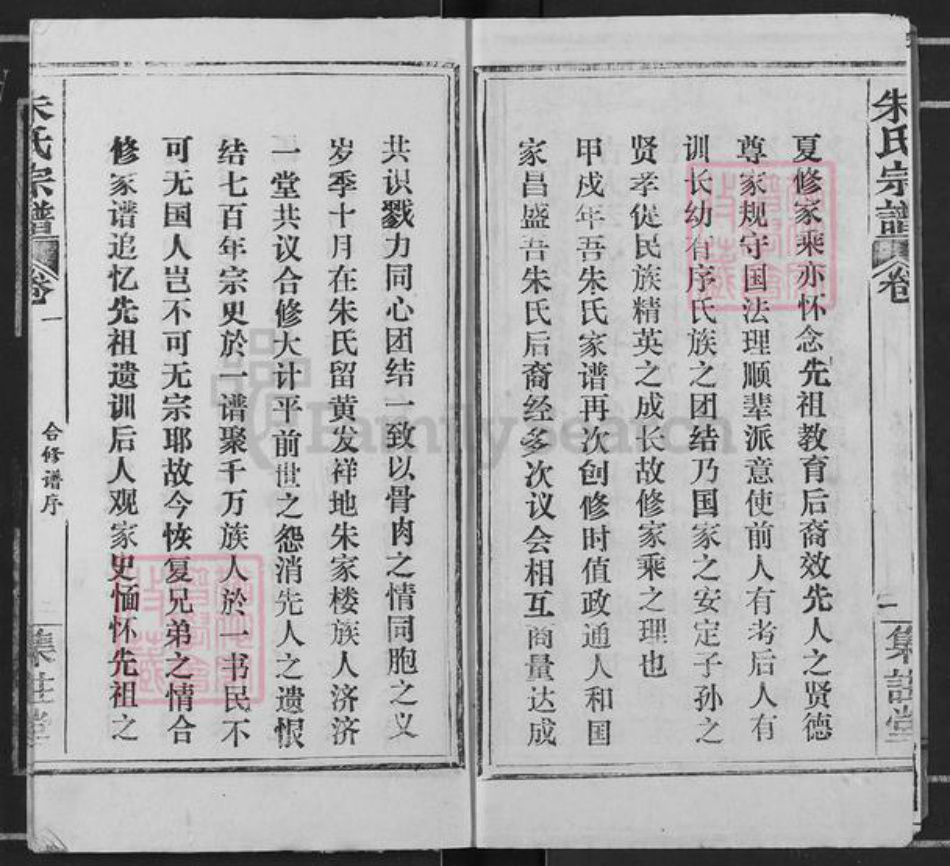 朱氏宗譜
卷
一
集
堂
夏修家乘亦怀念先祖教育后裔效先人之贤德
尊家规守国法理顺辈派意使前人有考后人有
训长幼有序氏族之团结乃国家之安定子孙之
贤孝促民族精英之成长故修家乘之理也
甲戍年吾朱氏家谱再次创修时值政通人和国
家昌盛吾朱氏后裔经多次议会相互商量达成
共识戮力同心团结一致以骨肉之情同胞之义
岁季十月在朱氏留黄发祥地朱家楼族人济济
一堂共议合修大计平前世之怨消先人之遗恨
结七百年宗史於一谱聚千万族人於一书民不
可无国人岂不可无宗耶故今恢复兄弟之情合
修家谱追忆先祖遗训后人观家史愐怀先祖之
朱氏宗譜
卷一
合修谱序
二
集
堂
FamilySearch